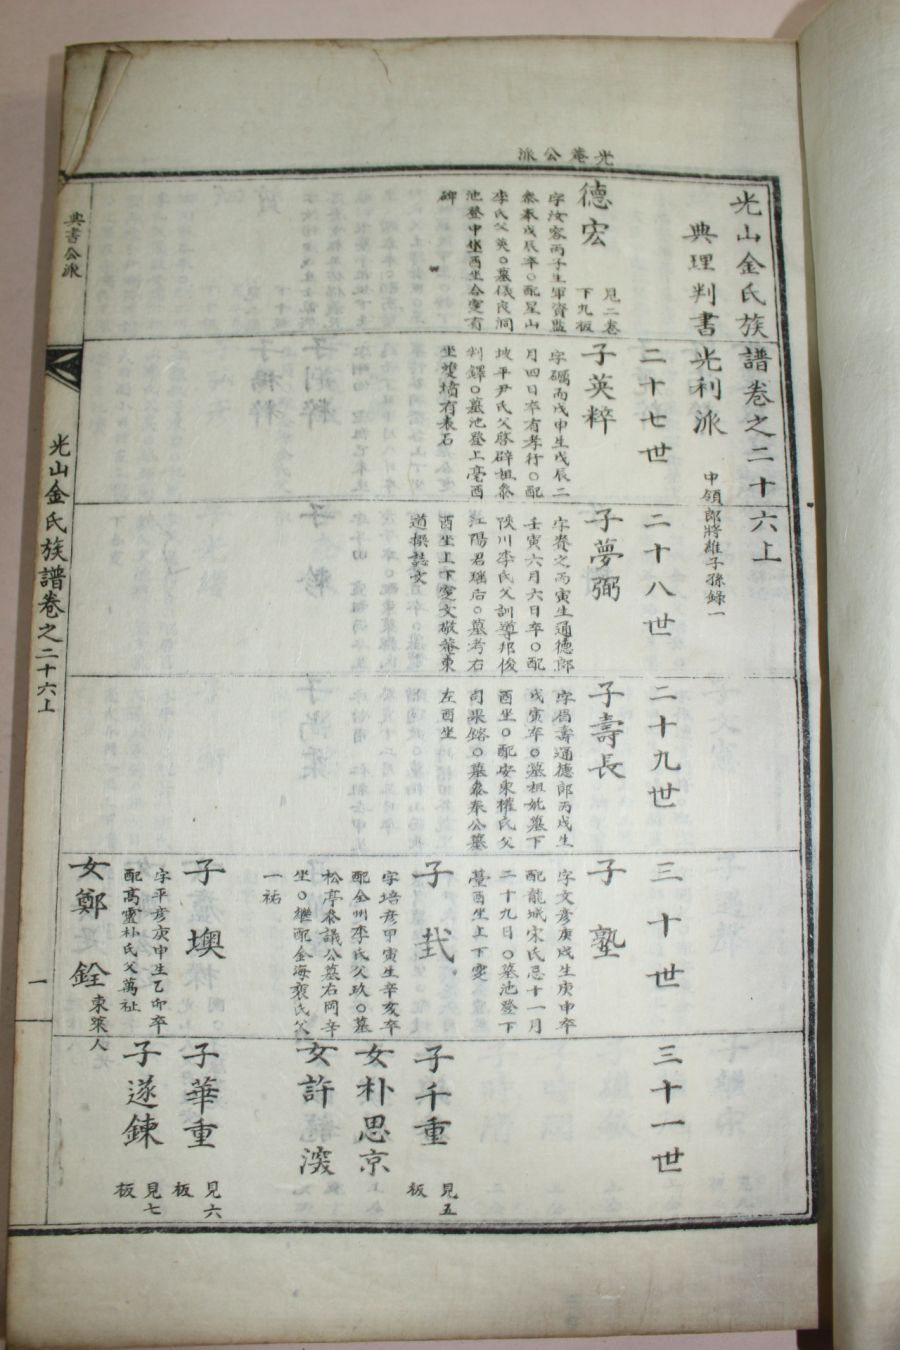 光菴公派
光山金氏族譜卷之二十六上
典理判書光利派
中領郎將維子孫錄一
德宏
見二卷
下九板
字汝容丙子生軍資監
參奉戊辰卒○配星山
李氏父英○墓儀良洞
池登申坐酉坐合窆有
碑
二十七世
子英粹
字礪而戊申生戊辰二
月四日卒有孝行○配
坡平尹氏父啓辟祖參
判鐸○墓池登上亳酉
坐雙墳有表石
二十八世
子夢弼
字賚之丙寅生通德郎
壬寅六月六日卒○配
陜川李氏父訓導邦俊
江陽君瑤后○墓考右
酉坐上下窆文敬菴東
道撰誌文
二十九世
子壽長
字眉壽通德郎丙戌生
戊寅卒○墓祖妣墓下
酉坐○配安東權氏父
司果鎔○墓參奉公墓
左酉坐
三十世
子塾
字文彥庚戌生庚申卒
配龍城宋氏忌十一月
二十九日○墓池登下
臺酉坐上下窆
子
字培彥甲寅生辛亥卒
配全州李氏父玖○墓
松亭參議公墓右岡辛
坐○繼配金海裵氏父
一祐
子墺
字平彥庚申生乙卯卒
配高靈朴氏父萬祉
女鄭銓
東萊人
三十一世
子千重
見五
板
女朴思京
女許濙
子華重
見六
板
子遂鍊
見七
板
典書公派
光山金氏族譜卷之二十六上
一